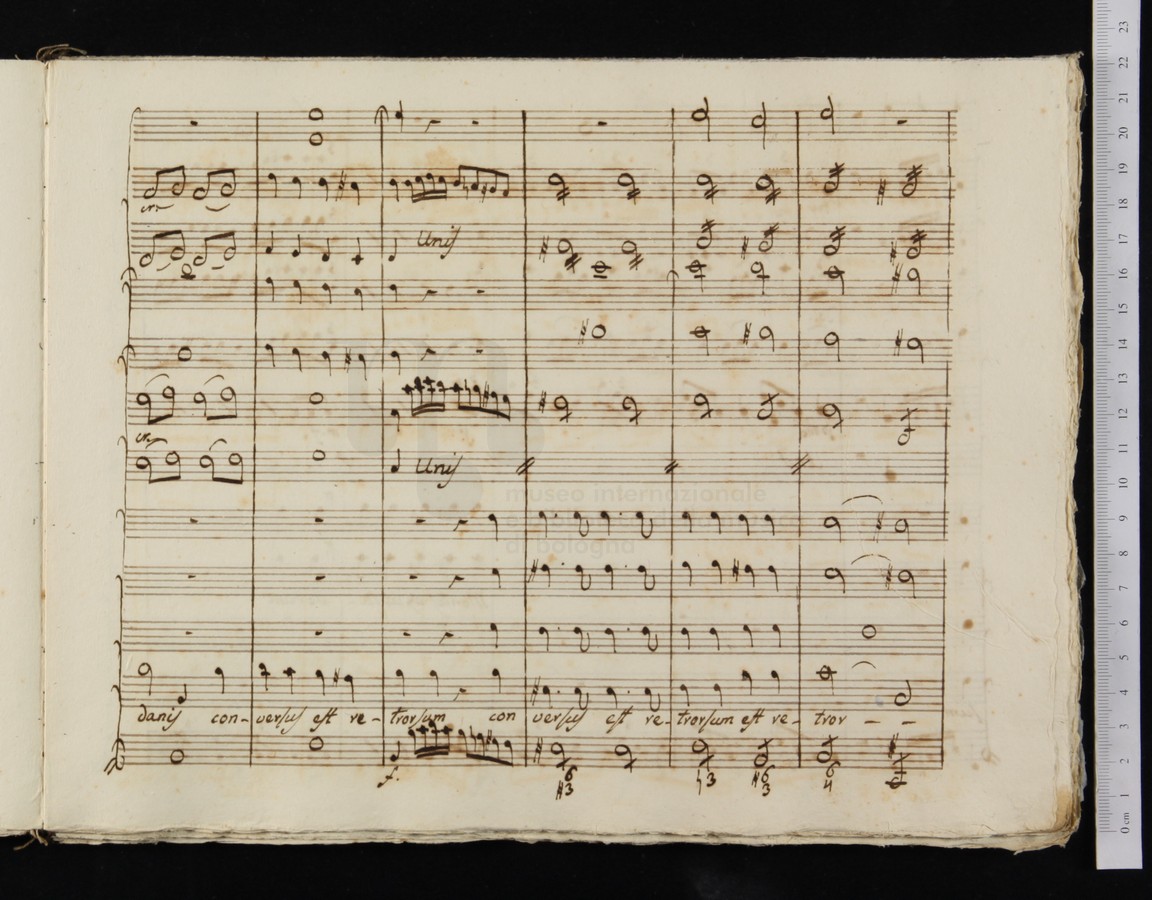 cr.
Unis
cr.
Unis
museo internazionale
di bologna
danis con- versus est re- trorsum con versus est re- trorsum est re- tror - -
f.
6 6 6
#3 ♮3 #3 4
23
22
21
20
19
18
17
16
15
14
13
12
11
10
9
8
7
6
5
4
3
2
1
0 cm